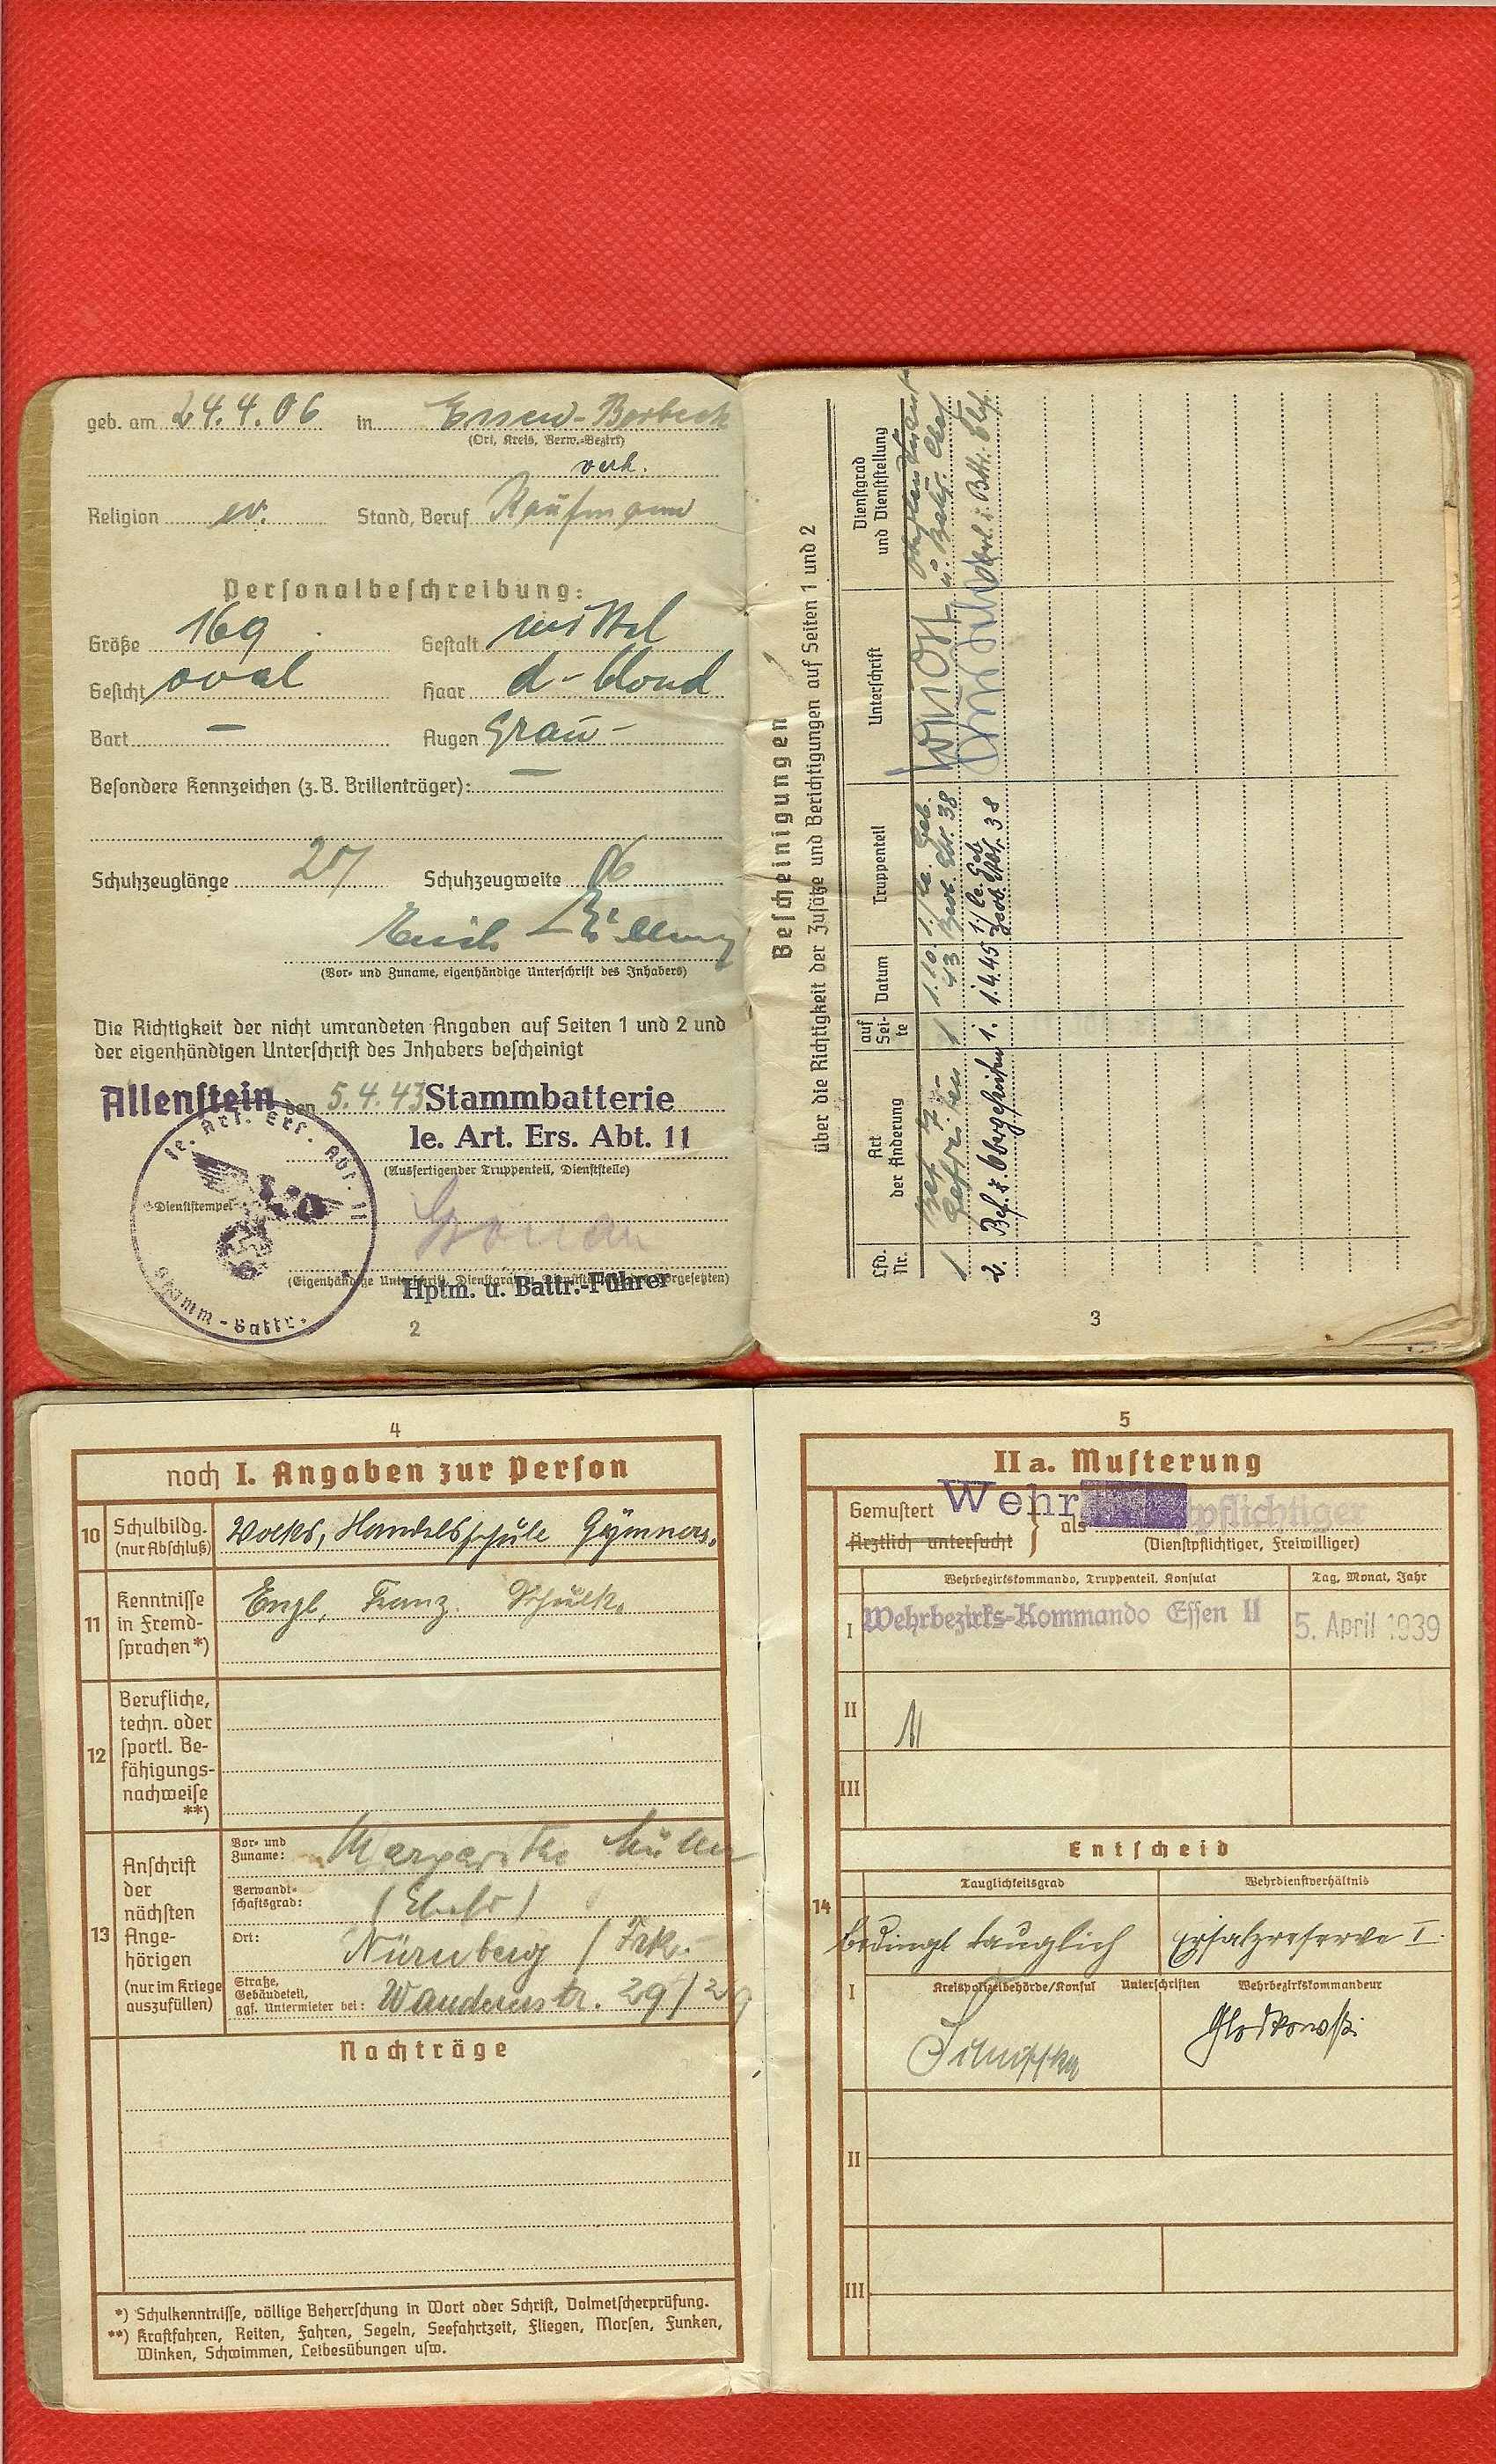 geb. am 24.4.06 in Essen-Borbeck
(Ort, Kreis, Verw.-Bezirk)
verh.
Religion ev. Stand, Beruf Kaufmann
Personalbeschreibung:
Größe 169 Gestalt mittel
Gesicht oval Haar d-blond
Bart — Augen grau
Besondere Kennzeichen (z.B. Brillenträger): —
Schuhzeuglänge 27 Schuhzeugweite
(Vor- und Zuname, eigenhändige Unterschrift des Inhabers)
Die Richtigkeit der nicht umrandeten Angaben auf Seiten 1 und 2 und
der eigenhändigen Unterschrift des Inhabers bescheinigt
Allenstein den 5.4.43 Stammbatterie
le. Art. Ers. Abt. 11
(Ausfertigender Truppenteil, Dienststelle)
le. Art. Ers. Abt. 11
Stamm-Battr.
Dienststempel
(Eigenhändige Unterschrift, Dienstgrad u. Dienststellung des Vorgesetzten)
Hptm. u. Battr.-Führer
2
Bescheinigungen
über die Richtigkeit der Zusätze und Berichtigungen auf Seiten 1 und 2
Lfd. Nr.
Art der Änderung
auf Seite
Datum
Truppenteil
Unterschrift
Dienstgrad und Dienststellung
1 Bef. z. Gefreiten 1 1.10.43 1./le. Geb.
38
2. Bef. z. Obergefreiten 1. 1.4.45 1./le. Geb.
38
3
4
noch I. Angaben zur Person
10 Schulbildg. (nur Abschluß) Volks, Handelsschule Gymnas.
11 Kenntnisse in Fremdsprachen*) Engl. Franz. Schulk.
12 Berufliche, techn. oder sportl. Befähigungsnachweise **)
13 Anschrift der nächsten Angehörigen (nur im Kriege auszufüllen)
Vor- und Zuname: Margarethe
Verwandtschaftsgrad: (Ehefr)
Ort: Nürnberg / Frk.
Straße, Gebäudeteil, ggf. Untermieter bei: 29/
Nachträge
*) Schulkenntnisse, völlige Beherrschung in Wort oder Schrift, Dolmetscherprüfung.
**) Kraftfahren, Reiten, Fahren, Segeln, Seefahrtzeit, Fliegen, Morsen, Funken,
Winken, Schwimmen, Leibesübungen usw.
5
II a. Musterung
Gemustert
Ärztlich untersucht
als Wehrpflichtiger
(Dienstpflichtiger, Freiwilliger)
Wehrbezirkskommando, Truppenteil, Konsulat Tag, Monat, Jahr
I Wehrbezirks-Kommando Essen II 5. April 1939
II
III
Entscheid
14
Tauglichkeitsgrad Wehrdienstverhältnis
bedingt tauglich Ersatzreserve I.
I Kreispolizeibehörde/Konsul Unterschriften Wehrbezirkskommandeur
Glodkowski
II
III